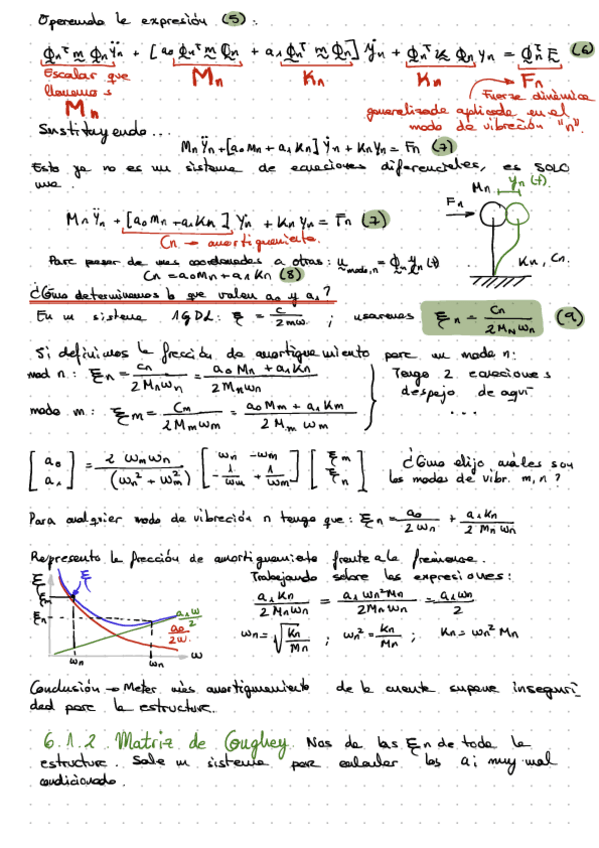 Operando la expresión (5):
Φnᵀ m Φn Ÿn + [a0 Φnᵀ m Φn + a1 Φnᵀ m Φn] Ẏn + Φnᵀ K Φn Yn = Φnᵀ F (6)
Escalar que llamamos Mn
Mn Kn Kn Fn
Fuerza dinámica generalizada aplicada en el modo de vibración "n"
Sustituyendo...
Mn Ÿn + [a0Mn + a1Kn] Ẏn + Kn Yn = Fn (7)
Esto ya no es un sistema de ecuaciones diferenciales, es SOLO
una.
Mn Yn (t)
Fn
Kn, Cn.
Mn Ÿn + [a0Mn + a1Kn] Ẏn + Kn Yn = Fn (7)
Cn → amortiguamiento.
Para pasar de unas coordenadas a otras: u modo,n = Φn Yn (t)
Cn = a0Mn + a1Kn (8)
¿Cómo determinamos lo que valen a0 y a1?
En un sistema 1GDL: ξ = c / 2mω ; usaremos ξn = Cn / 2MNωn (9)
Si definimos la fracción de amortiguamiento para un modo n:
mod n: ξn = Cn / 2Mnωn = a0Mn + a1Kn / 2Mnωn
Tengo 2 ecuaciones
despejo de aquí
...
modo m: ξm = Cm / 2Mmωm = a0Mm + a1Km / 2Mm ωm
[a0 a1] = 2 ωmωn / (ωn² + ωm²) [ωn -ωm -1/ωm +1/ωm] [ξm ξn]
¿Cómo elijo cuáles son
los modos de vibr. m, n?
Para cualquier modo de vibración n tengo que: ξn = a0 / 2ωn + a1Kn / 2Mnωn
Represento la fracción de amortiguamiento frente a la frecuencia.
Trabajando sobre las expresiones:
ξ ξ ξm ξn a1ω/2 a0/2ω ωn ωn ω
a1Kn / 2Mnωn = a1ωn²Mn / 2Mnωn = a1ωn / 2
ωn = √Kn/Mn ; ωn² = Kn/Mn ; Kn = ωn² Mn
Conclusión → Meter más amortiguamiento de la cuenta supone inseguri-
dad para la estructura.
6.1.2 Matriz de Coughey. Nos da las ξn de toda la
estructura. Sale un sistema para calcular los ai muy mal
condicionado.